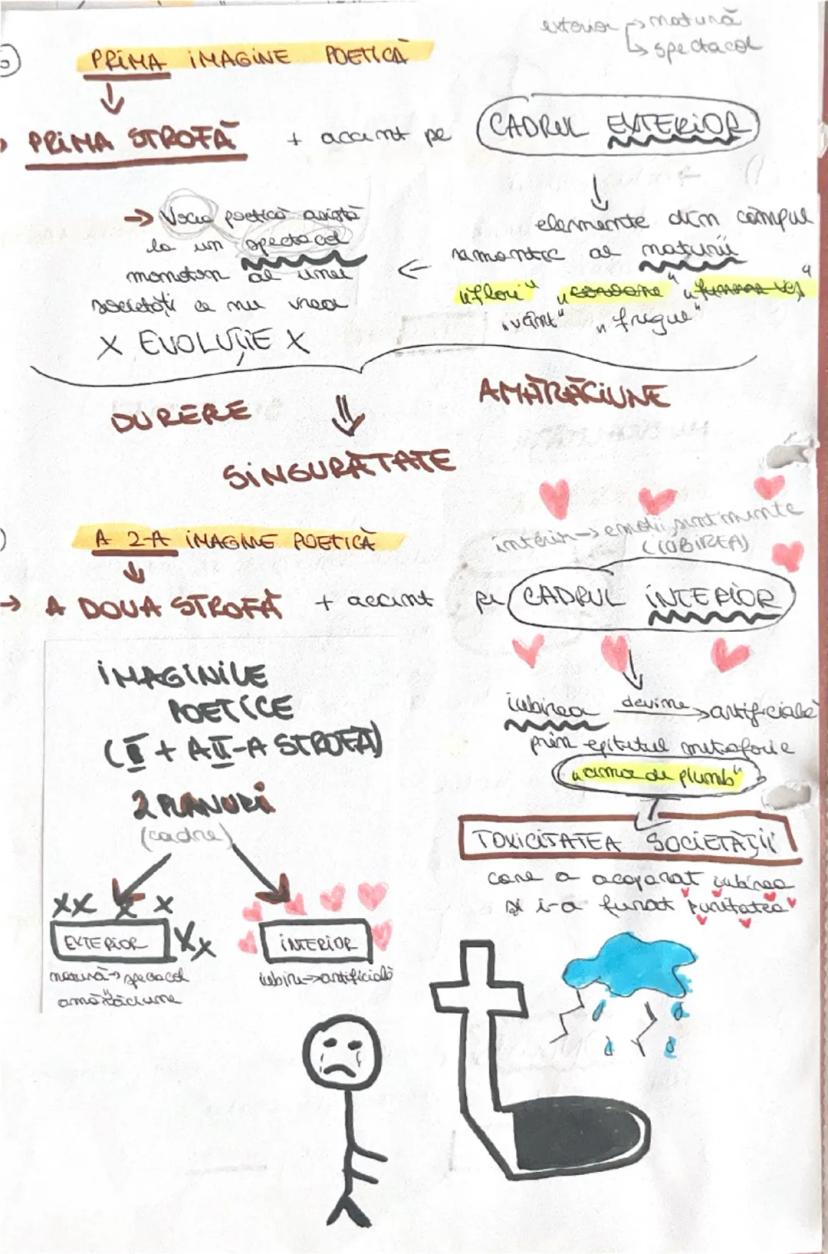 exterior → natură
↳ spectacol
PRIMA IMAGINE POETICĂ
PRIMA STROFĂ + accent pe CADRUL EXTERIOR
elemente din câmpul
semantic al naturii
"flori" "coroane" "funerar veș"
"vânt" "frigue"
→ Vocea poetică asistă
la un spectacol
monoton al unei
societăți ce nu vrea
X EVOLUȚIE X
DURERE
AMĂRĂCIUNE
SINGURĂTATE
A 2-A IMAGINE POETICĂ
interior → emoții, sentimente
(IUBIREA)
→ A DOUA STROFĂ + accent pe CADRUL INTERIOR
iubirea devine → artificială
prin epitetul metaforic
"aima de plumb"
TOXICITATEA SOCIETĂȚII
care a acaparat iubirea
și i-a furat puritatea
IMAGINILE
POETICE
(I + A II-A STROFĂ)
2 PLANURI
(cadre)
XX X X
EXTERIOR XX
natură → spectacol
amărăciune
INTERIOR
iubire → artificială